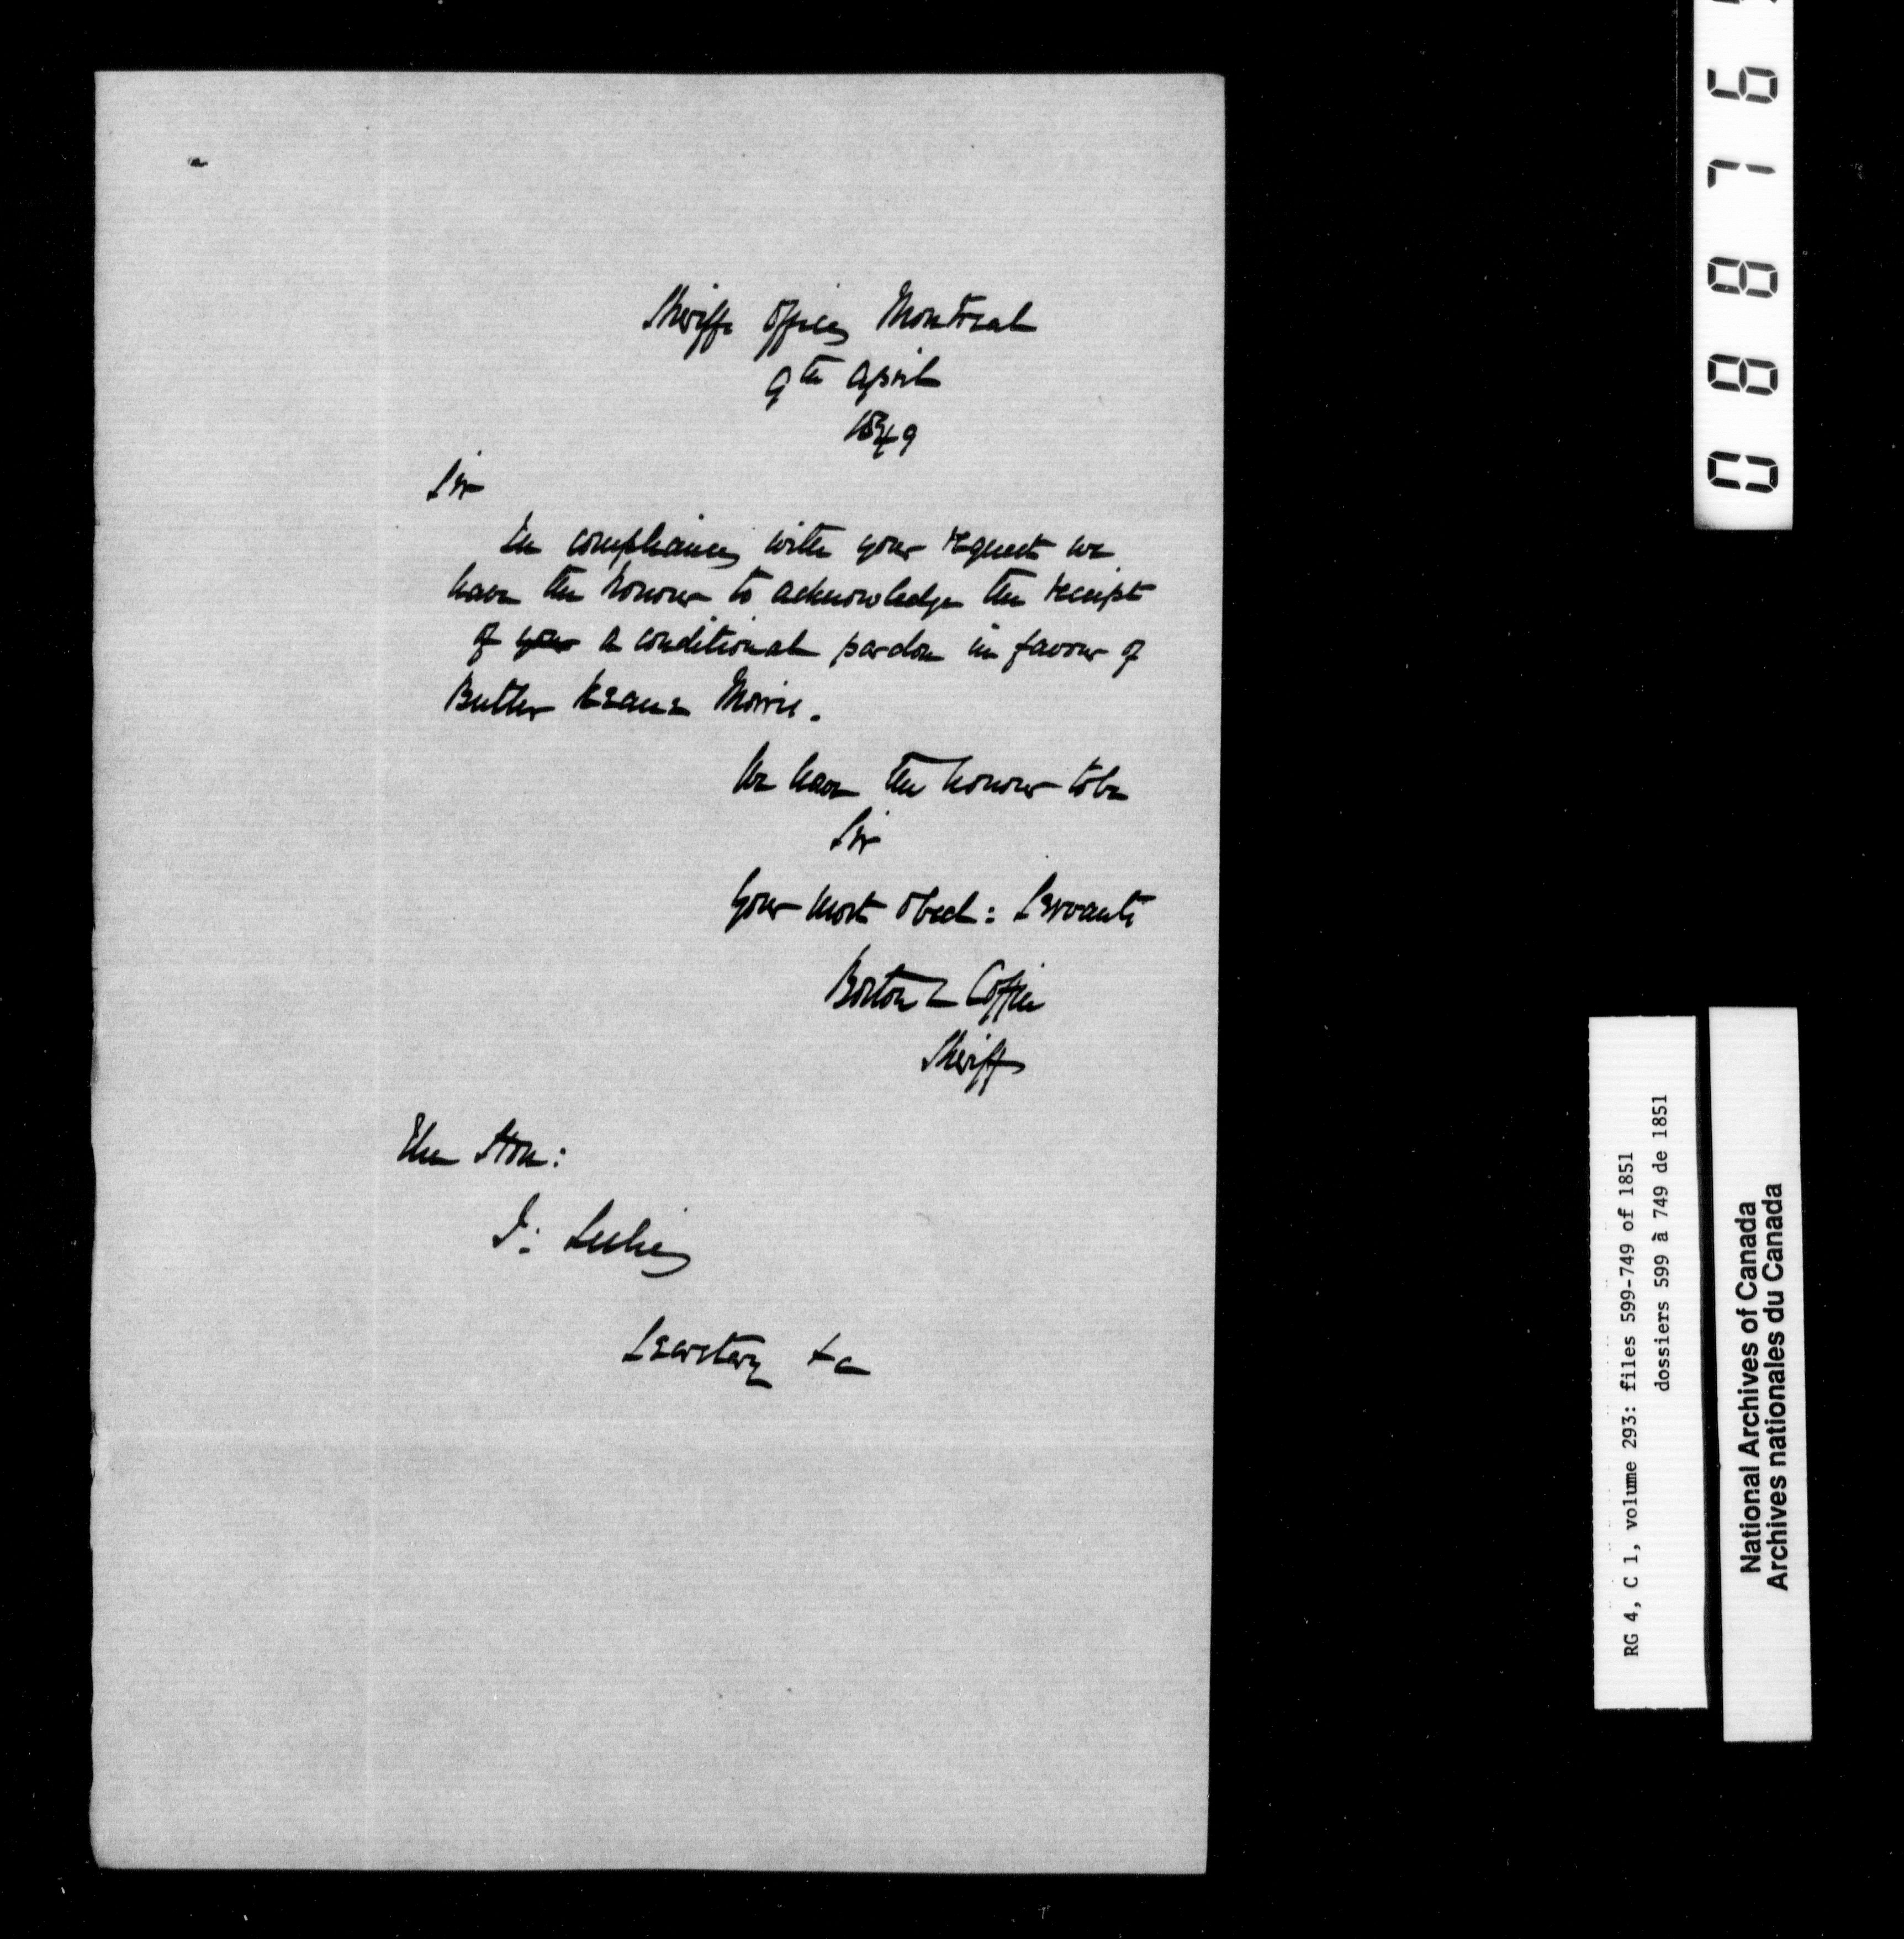 Sheriffs Office Montreal
9th April
1849
Sir
In compliance with your request we
have the honour to acknowledge the receipt
of your a conditional pardon in favour of
Butler Morris.
We have the honour to be
Sir
Your most obed: Servants
Boston & Coffin
Sheriff
The Hon:
J: Leslie
Secretary &c
088765
RG 4, C 1, volume 293: files 599-749 of 1851
dossiers 599 à 749 de 1851
National Archives of Canada
Archives nationales du Canada